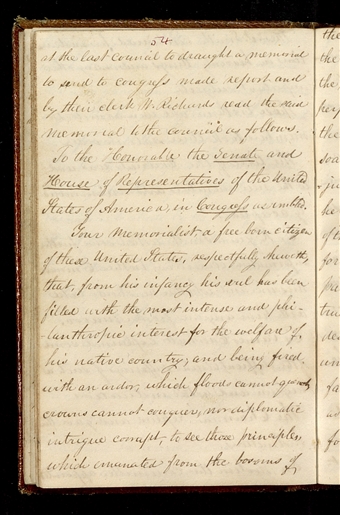 54
at the last council to draught a memorial
to send to Congress made report and
by their clerk W. Richards read the said
memorial to the council as follows.
To the Honorable the Senate and
House of Representatives of the United
States of America, in Congress assembled.
Your Memorialist, a free born citizen
of these United States, respectfully sheweth,
that, from his infancy his soul has been
filled with the most intense and phi-
-lanthropic interest for the welfare of
his native country; and being fired
with an ardor, which floods cannot quench,
crowns cannot conquer, nor diplomatic
intrigue corrupt, to see those principles,
which emanated from the bosoms of